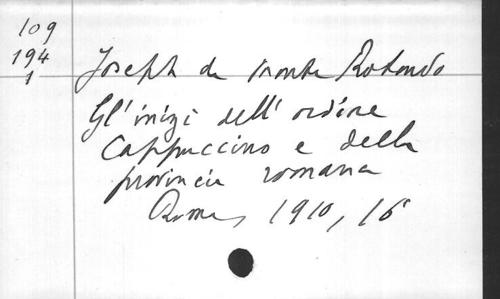 109
194
1
Joseph de Monte Rotondo
Gl'inizi dell'ordine
Cappuccino e della
provincia romana
Roma, 1910, 16°